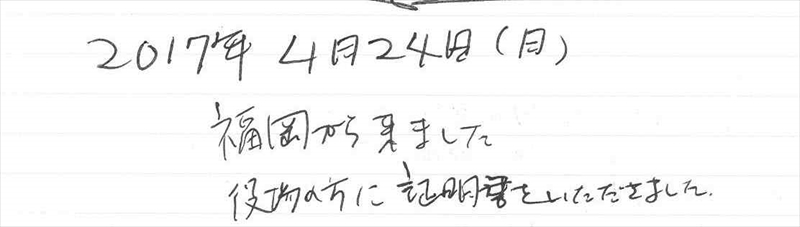 2017年 4月24日(月)
福岡から来ました
役場の方に証明書をいただきました.